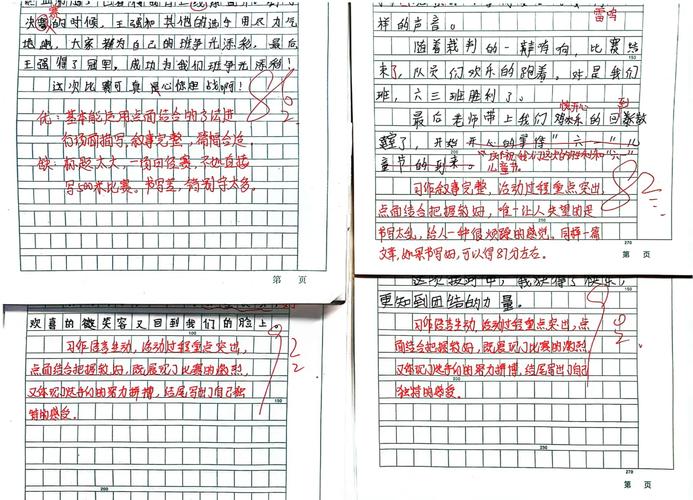 决赛的时候，王强和其他的选手用尽力气
地跑，大家都为自己的班争光添彩，最后
王强得了冠军，成功为我们班争光添彩！
这次比赛可真是心惊胆战啊！
86
优：基本能运用点面结合的方法进
行场面描写，叙事完整，详略合适
缺：标题太大，一场田径赛，不如直接
写500米比赛。书写差，错别字太多。
第 页
雷鸣
样的声音。
随着裁判的一声哨响，比赛结
来了，队员们欢乐的跑着，对是我们
班，六三班胜利了。
最后老师带上我们欢乐的回到教
室了，开始开人的等待“六一”儿
童节的到来。
习作叙事完整，活动过程重点突出，
点面结合把握较好，唯一让人失望的是
书写太乱，给人一种很烦躁的感觉。同样一篇
文章，如果书写好，可以得87分左右。
82
270
第 页
欢喜的微笑容又回到我们的脸上。
100
92
习作语言生动，活动过程重点突出，
点面结合把握较好，既展现了比赛的激烈，
又体现了选手们的努力拼搏，结尾写出了自己独
特的感受。
150
更知到团结的力量。
150
习作语言生动，活动过程重点突出，点
面结合把握较好，既展现了比赛的激烈，
又体现了选手们的努力拼搏，结尾写出了自己
独特的感受。
200
250
270
第 页